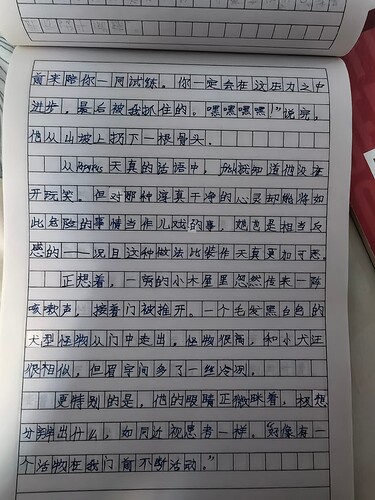 前来陪你一同试炼。你一定会在这压力之中
进步，最后被我抓住的。嘿嘿嘿嘿！”说完，
他从山坡上扔下一根骨头。
从天真的话语中，我就知道他没在
开玩笑。但对那种淳真干净的心灵却能将如
此危险的事情当作儿戏的事，她总是相当反
感的——况且这种做法比装作天真更加可恶。
正想着，一旁的小木屋里忽然传来一阵
咳嗽声，接着门被推开。一个毛发黑白色的
犬型怪物从门中走出，怪物很高，和小犬还
很相似，但眉宇间多了一丝冷冽。
更特别的是，他的眼睛正微眯着，极想
分辨出什么，如同近视患者一样。“好像有一
个活物在我们门前不断活动。”